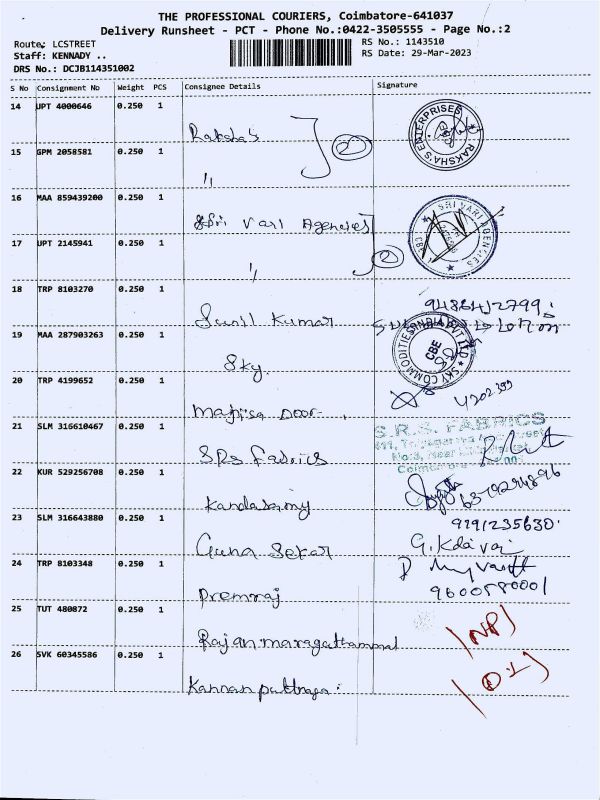 THE PROFESSIONAL COURIERS, Coimbatore-641037
Delivery Runsheet - PCT - Phone No.:0422-3505555 - Page No.:2
Route: LCSTREET
Staff: KENNADY ..
DRS No.: DCJB114351002
RS No.: 1143510
RS Date: 29-Mar-2023
S No Consignment No Weight PCS Consignee Details Signature
14 UPT 4000646 0.250 1
Raksha's 2 RAKSHA'S ENTERPRISES
15 GPM 2058581 0.250 1
"
16 MAA 859439200 0.250 1
Sri Vari Agencies SRI VARI AGENCIES CBE
17 UPT 2145941 0.250 1
" 2
18 TRP 8103270 0.250 1
Sunil Kumar
19 MAA 287903263 0.250 1
Sky. SKY COMMODITIES INDIA PVT LTD CBE
20 TRP 4199652 0.250 1
Door
21 SLM 316610467 0.250 1
SRS Fabrics S.R.S. FABRICS
22 KUR 529256708 0.250 1
Kandasamy
23 SLM 316643880 0.250 1
9191235630.
Guna Sekar
24 TRP 8103348 0.250 1
Premraj 9600580001
25 TUT 480872 0.250 1
Rajan maragathammal
26 SVK 60345586 0.250 1
Kannan